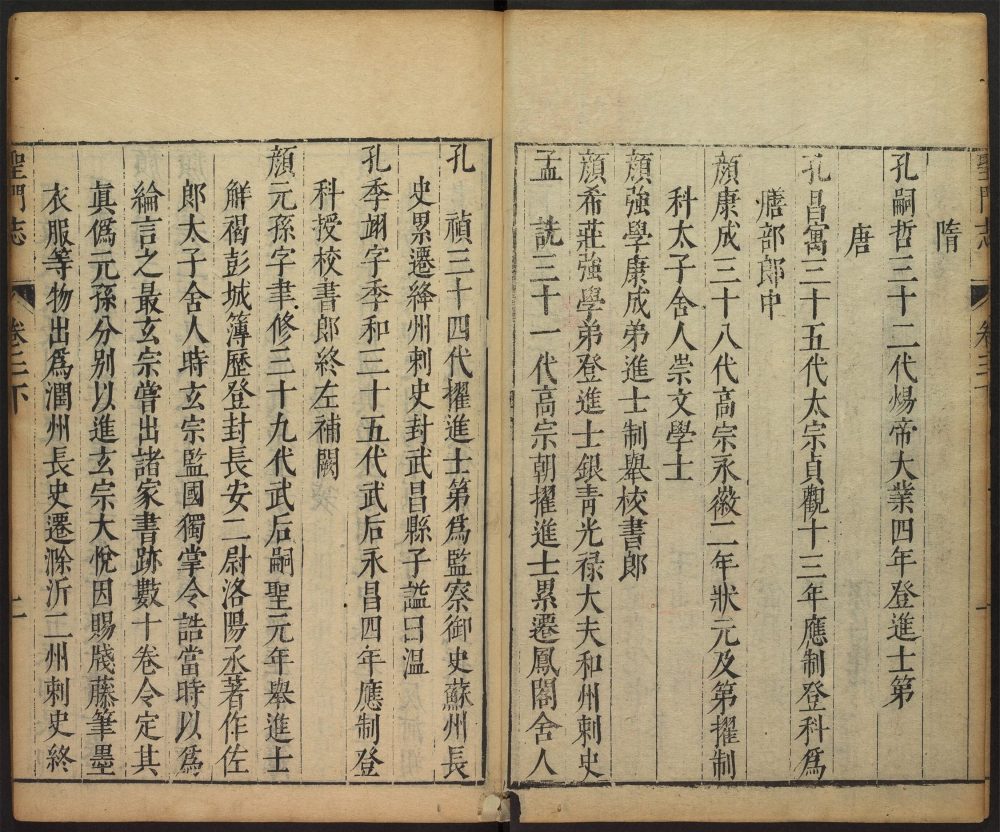 隋
孔嗣哲三十二代煬帝大業四年登進士第
唐
孔昌寓三十五代太宗貞觀十三年應制登科爲
膳部郎中
顏康成三十八代高宗永徽二年狀元及第擢制
科太子舍人崇文學士
顏強學康成弟進士制舉校書郎
顏希莊強學弟登進士銀青光祿大夫和州刺史
孟詵三十一代高宗朝擢進士累遷鳳閣舍人
聖門志
卷三下
一
孔禎三十四代擢進士第爲監察御史蘇州長
史累遷絳州刺史封武昌縣子謚曰溫
孔季翊字季和三十五代武后永昌四年應制登
科授校書郎終左補闕
顏元孫字聿修三十九代武后嗣聖元年舉進士
解褐彭城簿歷登封長安二尉洛陽丞著作佐
郎太子舍人時玄宗監國獨掌令誥當時以爲
綸言之最玄宗嘗出諸家書跡數十卷令定其
眞僞元孫分別以進玄宗大悅因賜牋藤筆墨
衣服等物出爲潤州長史遷滁沂二州刺史終
聖門志
卷三下